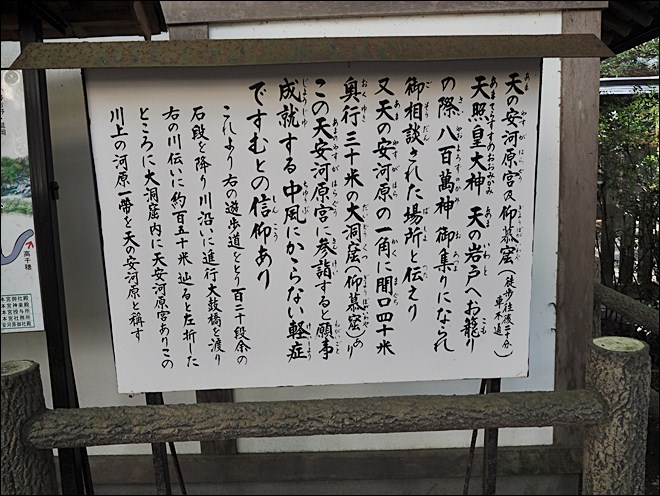 天の安河原宮及仰慕窟(徒歩往復二十分 車不通)
天照皇大神 天の岩戸へお籠り
の際八百萬神御集りになられ
御相談された場所と伝えり
又天の安河原の一角に間口四十米
奥行三十米の大洞窟(仰慕窟)あり
この天安河原宮に参詣すると願事
成就する 中風にかゝらない軽症
ですむとの信仰あり
これより右の遊歩道をとり百二十段余の
石段を降り川沿いに進行大鼓橋を渡り
右の川伝いに約百五十米辿ると左折した
ところに大洞窟内に天安河原宮ありこの
川上の河原一帯を天の安河原と稱す
高千穂